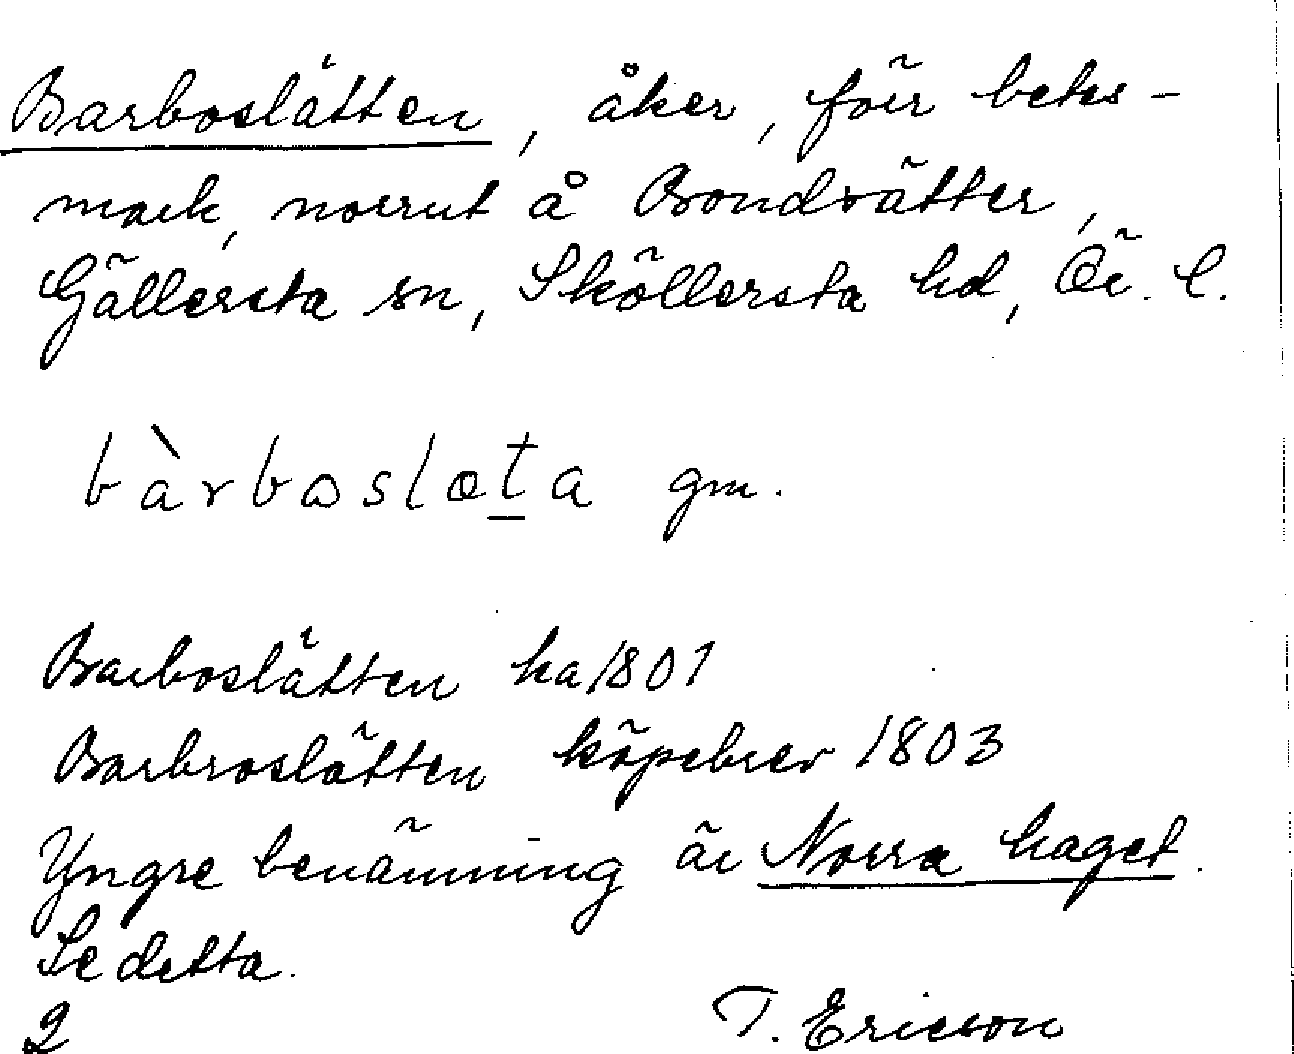 Barboslätten, åker, förr betes-
mark, norrut å Bondsätter,
Gällersta sn, Sköllersta hd, Ör. l.
bàrbωslæt̲a gm.
Barboslätten ha 1801
Barbroslätten köpebrev 1803
Yngre benämning är Norra haget.
Se detta.
2 T. Ericson